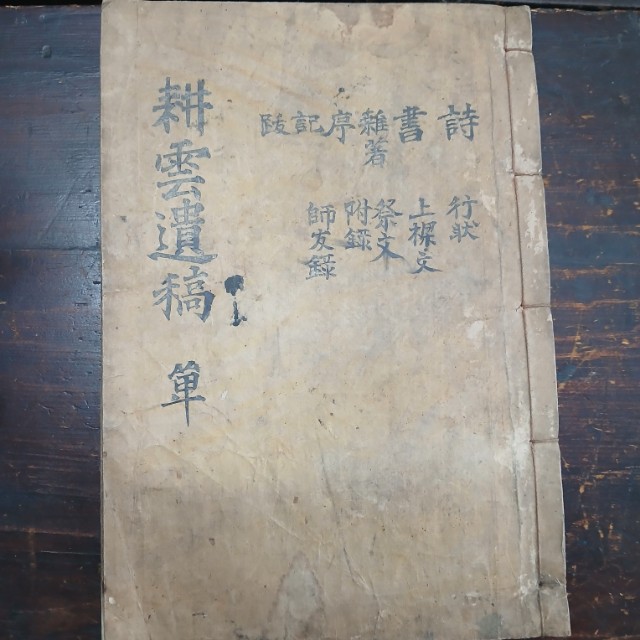 詩 行狀
書 上樑文
雜著 祭文
序 附錄
記 師友錄
跋
耕雲遺稿 單